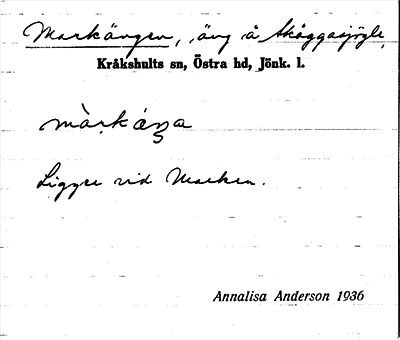 Markängen, äng å Skäggasjögle,
Kråkshults sn, Östra hd, Jönk. l.
màrkáŋa
Ligger vid Marken.
Annalisa Anderson 1936